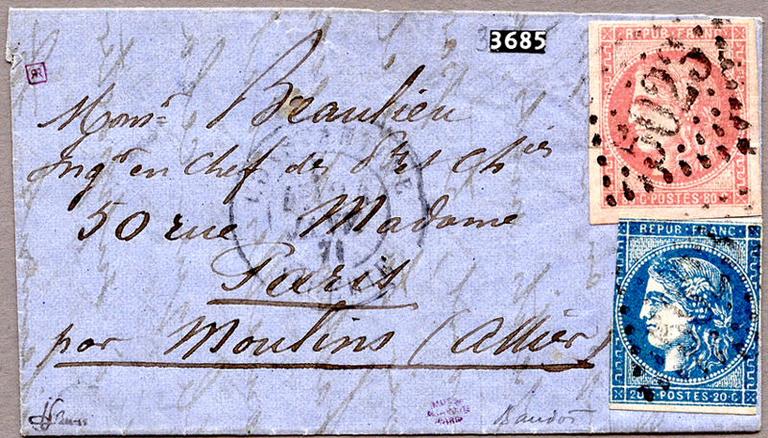 3685
REPUB·FRANC·
5023
80·C·POSTES·80·C
Monsr Beaulieu
Ingr en chef des Pts et Chées
50 rue Madame
Paris
par Moulins (Allier)
71
REPUB·FRANC·
20·C·POSTES·20·C